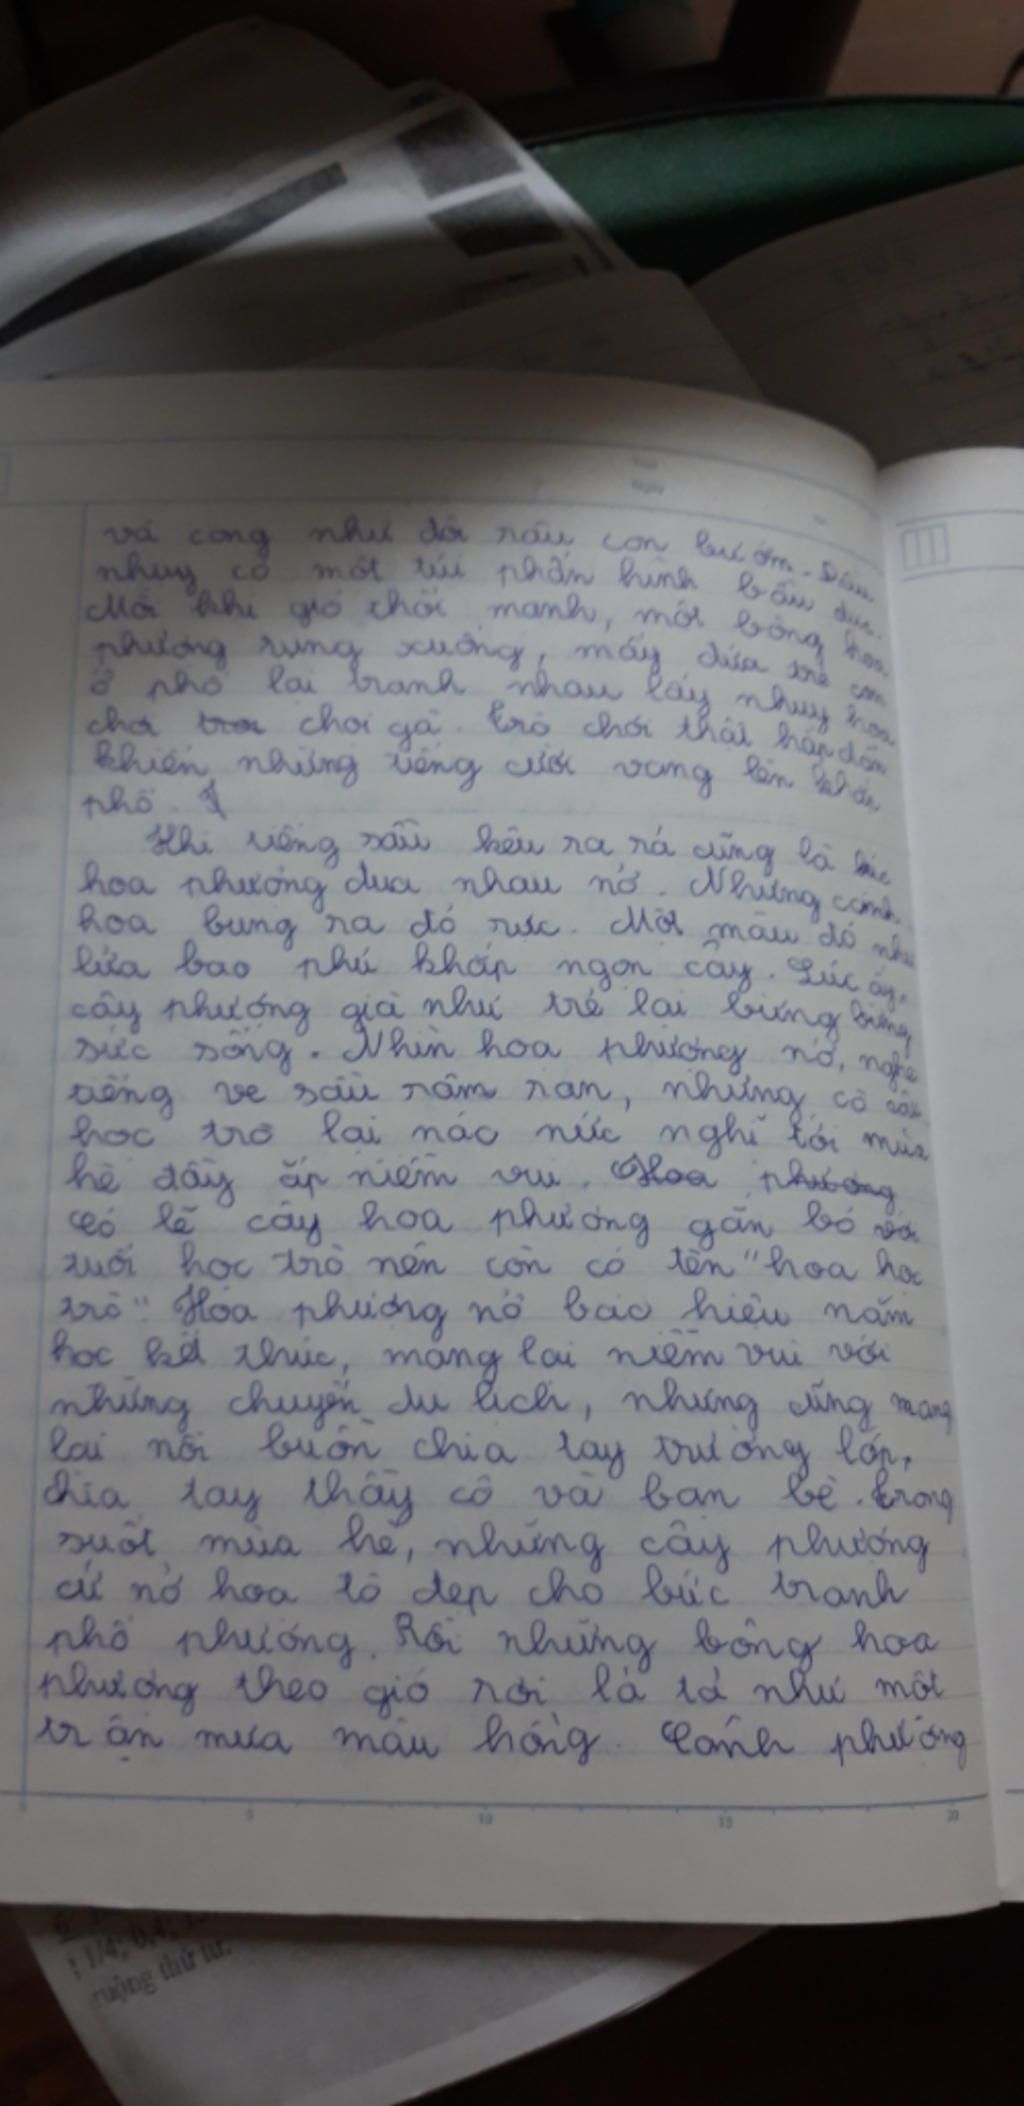 và cong như đôi râu con bướm. Đầu
nhụy có một túi phấn hình bầu dục.
Mỗi khi gió thổi mạnh, một bông hoa
phượng rụng xuống, mấy đứa trẻ con
ở phố lại tranh nhau lấy nhụy hoa
chơi chọi gà. Trò chơi thật hấp dẫn
khiến những tiếng cười vang lên khắp
phố.
Khi tiếng sấu kêu ra rả cũng là lúc
hoa phượng đua nhau nở. Những cánh
hoa bung ra đỏ rực. Một màu đỏ như
lửa bao phủ khắp ngọn cây. Lúc ấy,
cây phượng già như trẻ lại bừng bừng
sức sống. Nhìn hoa phượng nở, nghe
tiếng ve sầu râm ran, những cô cậu
học trò lại náo nức nghĩ tới mùa
hè đầy ắp niềm vui. Hoa phượng
Có lẽ cây hoa phượng gắn bó với
tuổi học trò nên còn có tên "hoa học
trò". Hoa phượng nở báo hiệu năm
học kết thúc, mang lại niềm vui với
những chuyến du lịch, nhưng cũng mang
lại nỗi buồn chia tay trường lớp,
chia tay thầy cô và bạn bè. Trong
suốt mùa hè, những cây phượng
cứ nở hoa tô đẹp cho bức tranh
phố phường. Rồi những bông hoa
phượng theo gió rơi lả tả như một
trận mưa màu hồng. Cánh phượng
5 10 15 20
1/4; 0,4;
ruộng thứ tư.